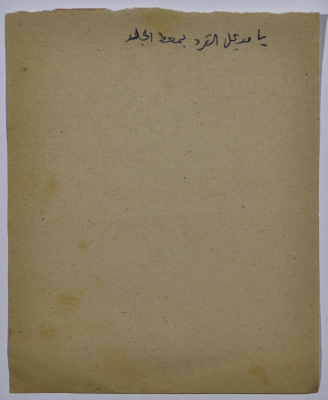 يا مديل القرد بمعط الجلد